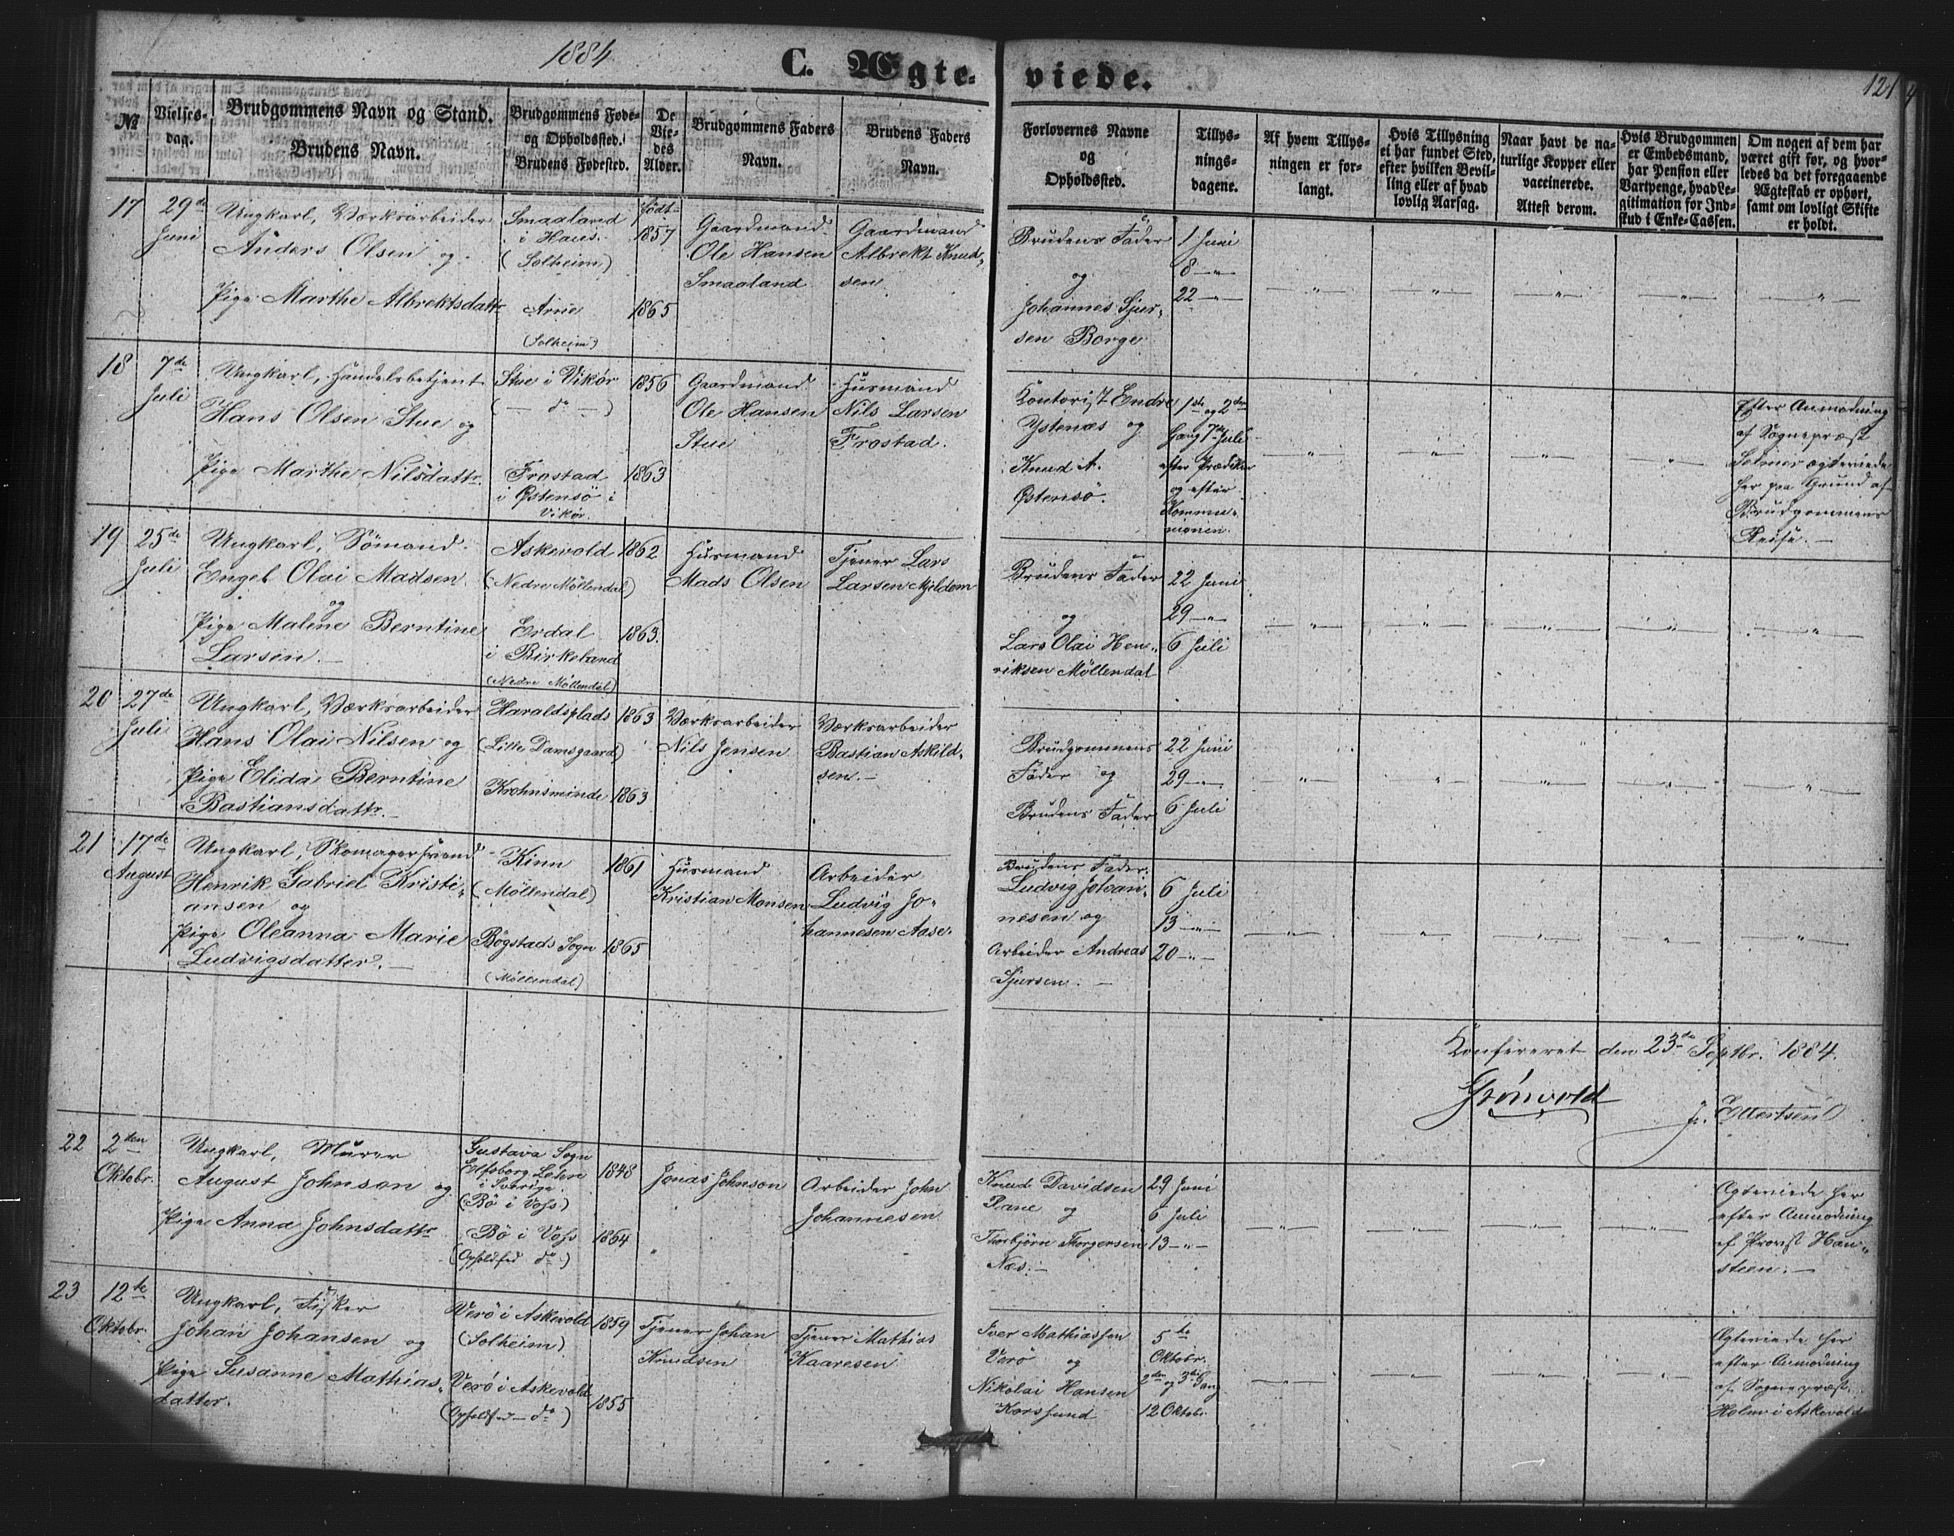 1884
C. Ægteviede.
121
№
Vielses-
dag.
Brudgommens Navn og Stand.
Brudens Navn.
Brudgommens Føde-
og Opholdssted.
Brudens Fødested.
De
Vie-
des
Alder.
Brudgommens Faders
Navn.
Brudens Faders
Navn.
Forlovernes Navne
og
Opholdssted.
Tillys-
nings-
dagene.
Af hvem Tillys-
ningen er for-
langt.
Hvis Tillysning
ei har fundet Sted,
efter hvilken Bevil-
ling eller af hvad
lovlig Aarsag.
Naar havt de na-
turlige Kopper eller
vaccinerede.
Attest derom.
Hvis Brudgommen
er Embedsmand,
har Pension eller
Vartpenge, hvad Le-
gitimation for Ind-
skud i Enke-Cassen.
Om nogen af dem har
været gift før, og hvor-
ledes da det foregaaende
Ægteskab er ophørt,
samt om lovligt Skifte
er holdt.
17
29de
Juni
Ungkarl, Værksarbeider
Anders Olsen og
Pige Marthe Albrektsdattr
Smaaland
i Haus.
(Solheim)
Arne
(Solheim)
født
1857
1865
Gaardmand
Ole Hansen
Smaaland
Gaardmand
Albrekt Knud-
sen
Brudens Fader
og
Johannes Sjur-
sen Borge
1 Juni
8 —"—
22 —"—
18
7de
Juli
Ungkarl, Handelsbetjent
Hans Olsen Stue og
Pige Marthe Nilsdattr.
Stue i Vikør
(— do —)
Frostad
i Østensö i
Vikør.
1856
1863
Gaardmand
Ole Hansen
Stue
Husmand
Nils Larsen
Frostad.
Kontorist Endre
Ystenæs og
Knud A.
Østensö.
1ste og 2den
Gang 7de Juli
efter Prædiken
og efter
Kommu-
nionen.
Efter Anmodning
af Sognepræst
Selmer ægteviede
her paa Grund af
Brudgommens
Reise. —
19
25de
Juli
Ungkarl, Sömand
Engel Olai Madsen
og
Pige Malene Berntine
Larsen. —
Askevold
(Nedre Möllendal)
Erdal
i Birkeland
(Nedre Möllendal)
1862
1863.
Husmand
Mads Olsen
Tjener Lars
Larsen Mjeldem
Brudens Fader
og
Lars Olai Hen-
riksen Möllendal
22 Juni
29 —"—
6 Juli
20
27de
Juli
Ungkarl, Værksarbeider
Hans Olai Nilsen og
Pige Elida Berntine
Bastiansdattr. —
Haraldsplads
(Lille Damsgaard)
Krohnsminde
1863
1863
Værksarbeider
Nils Jensen
Værksarbeider
Bastian Askild-
sen. —
Brudgommens
Fader og
Brudens Fader
22 Juni
29 —"—
6 Juli
21
17de
August
Ungkarl, Skomagersvend
Henrik Gabriel Kristi-
ansen og
Pige Oleanna Marie
Ludvigsdatter. —
Kinn
(Möllendal)
Bögstads Sogn
(Möllendal)
1861
1865
Husmand
Kristian Monsen
Arbeider
Ludvig Jo-
hannesen Aase.
Brudens Fader.
Ludvig Johan-
nesen og
Arbeider Andreas
Sjursen. —
6 Juli
13 —"—
20 —"—
Konfereret den 23de Septbr. 1884.
Grönvold
J. Ellertsen
22
2den
Oktobr.
Ungkarl, Murer
August Johnson og
Pige Anna Johnsdattr
Gustava Sogn
Elfsborg Lehn
i Sverige.
(Bö i Voss)
Bö i Voss
(Opholdssted do)
1848
1864
Jonas Johnson
Arbeider John
Johannesen
Knud Davidsen
Rane og
Thorbjörn Thorgersen
Næs. —
29 Juni
6 Juli
13 —"—
Ægteviede her
efter Anmodning
af Provst Han-
steen. —
23
12te
Oktobr.
Ungkarl, Fisker
Johan Johansen og
Pige Susanne Mathias-
datter.
Verö i Askevold
(Solheim)
Verö i Askevold
(Opholdssted — do)
1859
1855
Tjener Johan
Knudsen
Tjener Mathias
Kaaresen
Iver Mathiassen
Verö og
Nikolai Hansen
Korssund
5te
Oktobr.
2den og 3die Gang
12 Oktobr.
Ægteviede her
efter Anmodning
af Sognepræst
Holm i Askevold